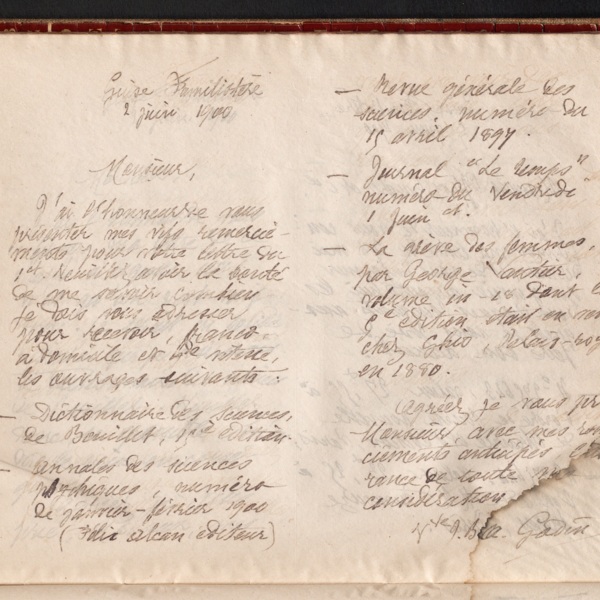 Guise Familistère
2 juin 1900
Monsieur,
J'ai l'honneur de vous
présenter mes vifs remercie-
ments pour votre lettre du
1er. Veuillez avoir la bonté
de me savoir combien
je dois vous adresser
pour recevoir, franco,
à domicile et
les ouvrages suivants :
— Dictionnaire des sciences,
de Bouillet, édition.
— Annales des sciences
psychiques, numéro
de janvier-février 1900
(Félix Alcan éditeur)
— Revue générale des
sciences, numéro du
15 avril 1897.
— Journal "Le temps"
numéro du vendredi
1 juin ct.
— La grève des femmes,
par George
volume in-18 dont
édition était en
chez Ghio, Palais-
en 1880.
Agréez, je vous
Monsieur avec mes
ciements anticipés
rance de toute
considération
Vve Godin